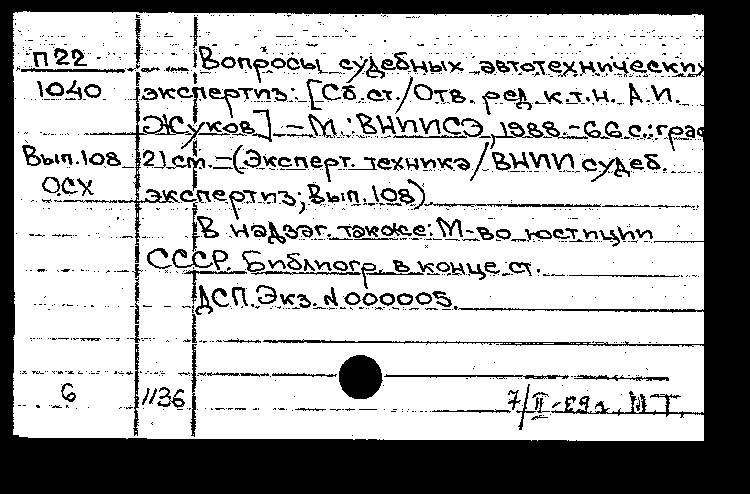 П22 Вопросы судебных автотехнических
1040 экспертиз: [Сб.ст./Отв. ред. к.т.н. А.И.
Жуков]. – М.: ВНИИСЭ, 1988. – 66 с.: граф
Вып.108 21 cm. – (Эксперт. техника/ВНИИ судеб.
ОСХ экспертиз; Вып. 108)
В надзаг. также: М-во юстиции
СССР. Библиогр. в конце ст.
ДСП. Экз. N 000005.
6 1136 7/II-89г. М.Т.